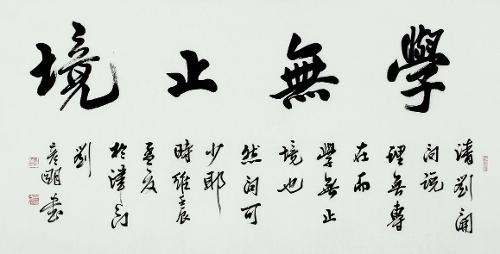 學無止境
清劉開
问说
理無專
在而
學無止
境也
然问可
少耶
時維壬辰
孟夏
於津门
劉
彦明書